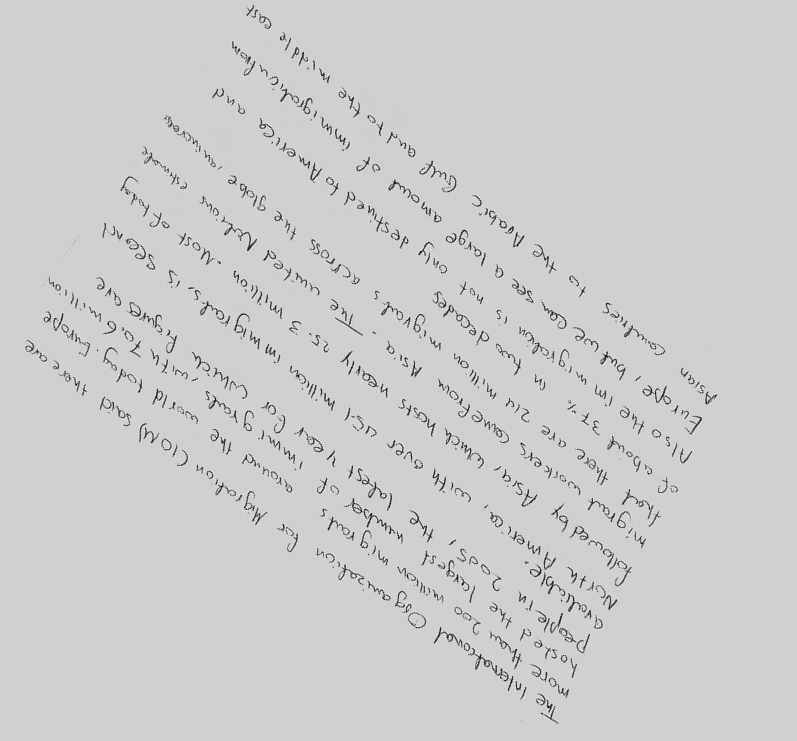 The International Organization for Migration (IOM) said there are
more than 200 million migrants around the world today. Europe
hosted the largest number of immigrants, with 70.6 million
people in 2005, the latest year for which figures are
avaliable. North America, with over 45.1 million immigrants, is second
followed by Asia, which hosts nearly 25.3 million. Most of today
migrant workers come from Asia. The united Nations estimate
that there are 214 million migrants across the globe, an increase
of about 37% in two decades
Also the immigration is not only destined to America and
Europe, but we can see a large amount of immigration from
Asian countries to the Arabic Gulf and to the middle east